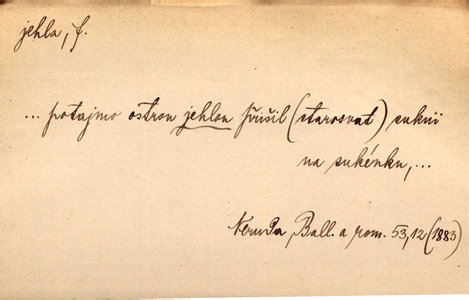 jehla, f.
... potajmo ostrou jehlou přišil (starosvat) sukni
na sukénku, ...
Neruda, Ball. a rom. 53,12 (1883)